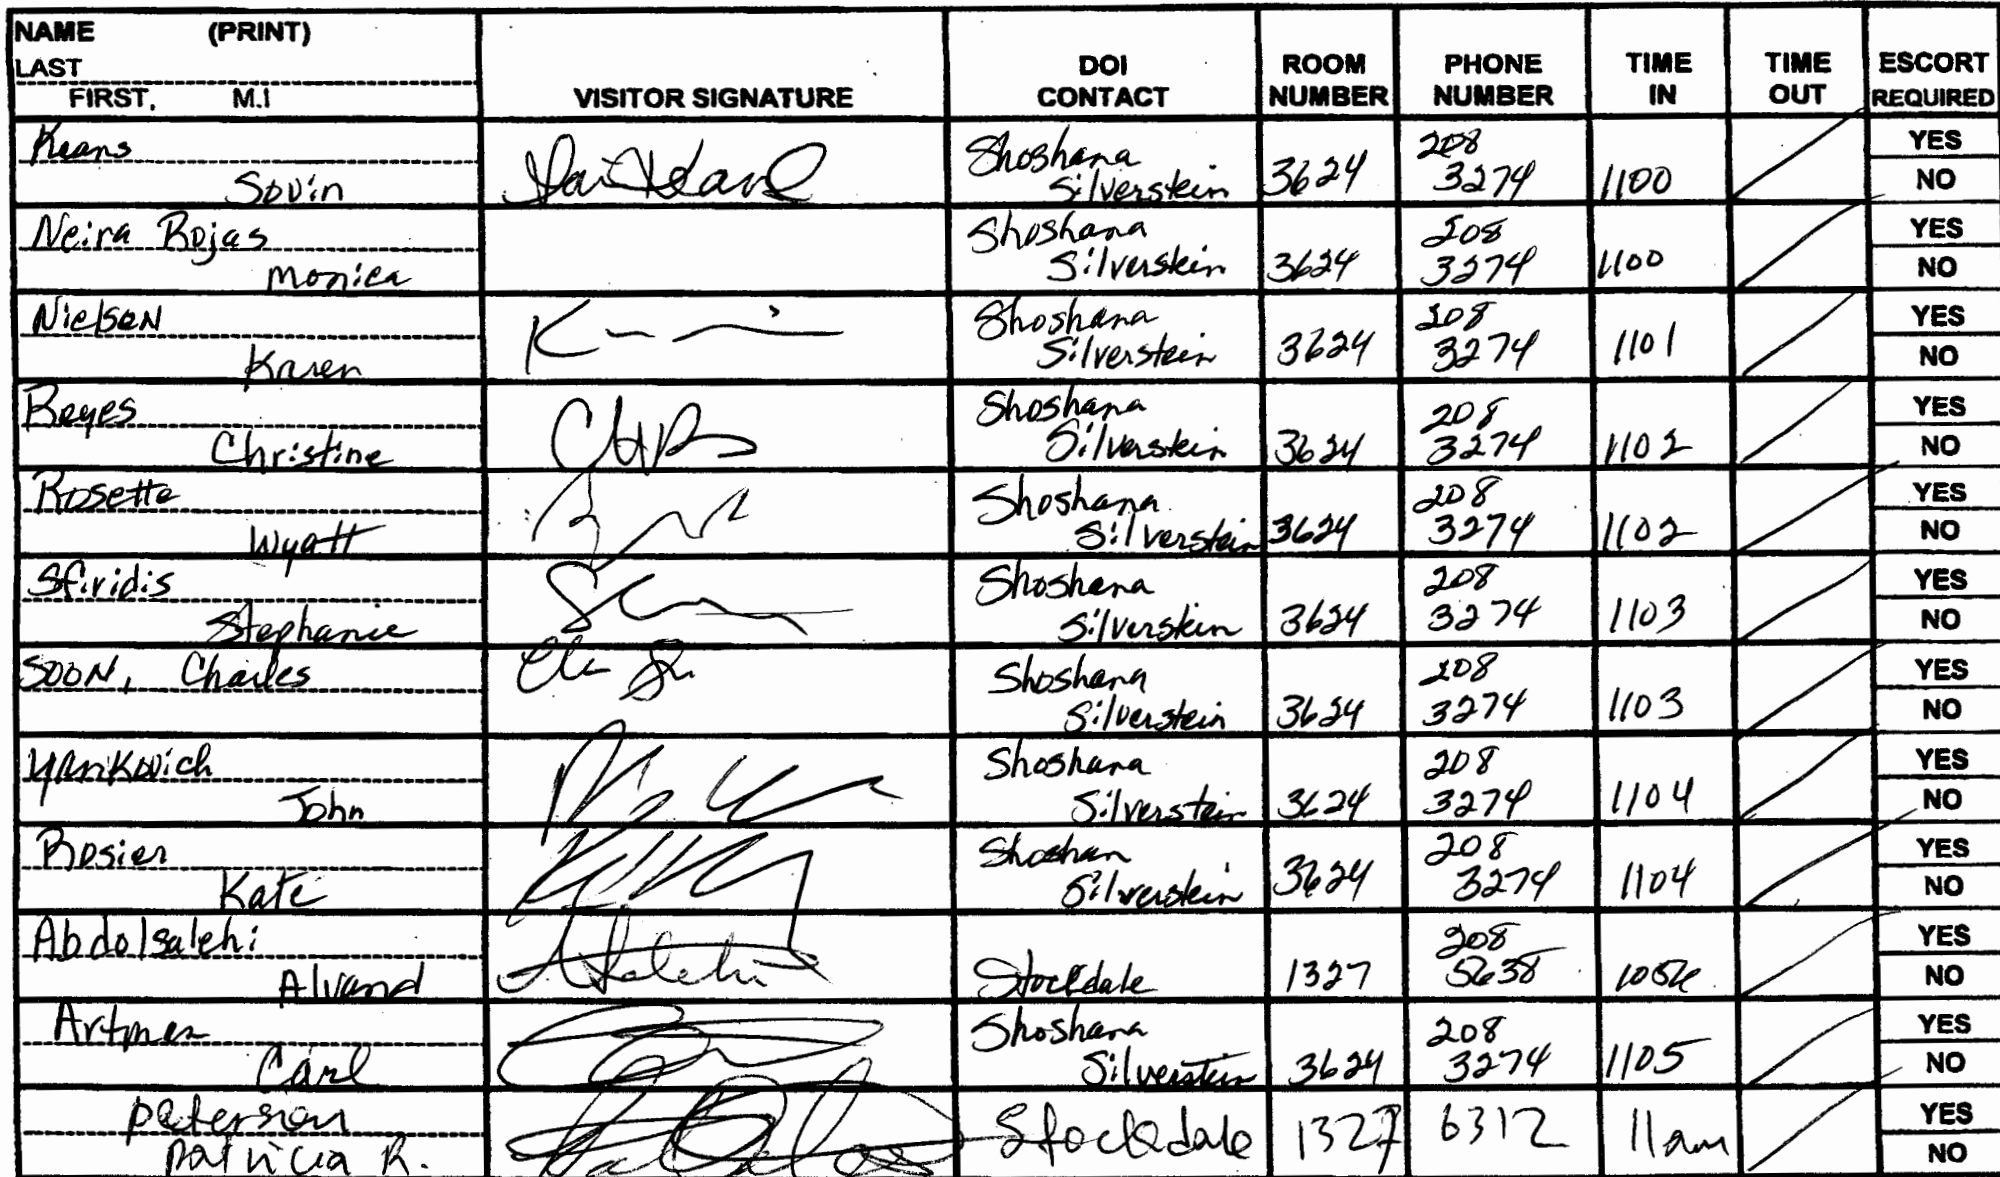 NAME (PRINT)
LAST
FIRST, M.I
VISITOR SIGNATURE
DOI
CONTACT
ROOM
NUMBER
PHONE
NUMBER
TIME
IN
TIME
OUT
ESCORT
REQUIRED
Keans
Sovin
Shoshana
Silverstein
3624
208
3274
1100
YES
NO
Neira Rojas
Monica
Shoshana
Silverstein
3624
208
3274
1100
YES
NO
Nielsen
Karen
Shoshana
Silverstein
3624
208
3274
1101
YES
NO
Reyes
Christine
Shoshana
Silverstein
3624
208
3274
1102
YES
NO
Rosette
Wyatt
Shoshana
Silverstein
3624
208
3274
1102
YES
NO
Sfiridis
Stephanie
Shoshana
Silverstein
3624
208
3274
1103
YES
NO
SOON, Charles
Shoshana
Silverstein
3624
208
3274
1103
YES
NO
Yankovich
John
Shoshana
Silverstein
3624
208
3274
1104
YES
NO
Rosier
Kate
Shoshan
Silverstein
3624
208
3274
1104
YES
NO
Abdolsalehi
Alvand
Stockdale
1327
208
5638
1056
YES
NO
Artman
Carl
Shoshana
Silverstein
3624
208
3274
1105
YES
NO
Peterson
Patricia R.
Stockdale
1327
6312
11am
YES
NO